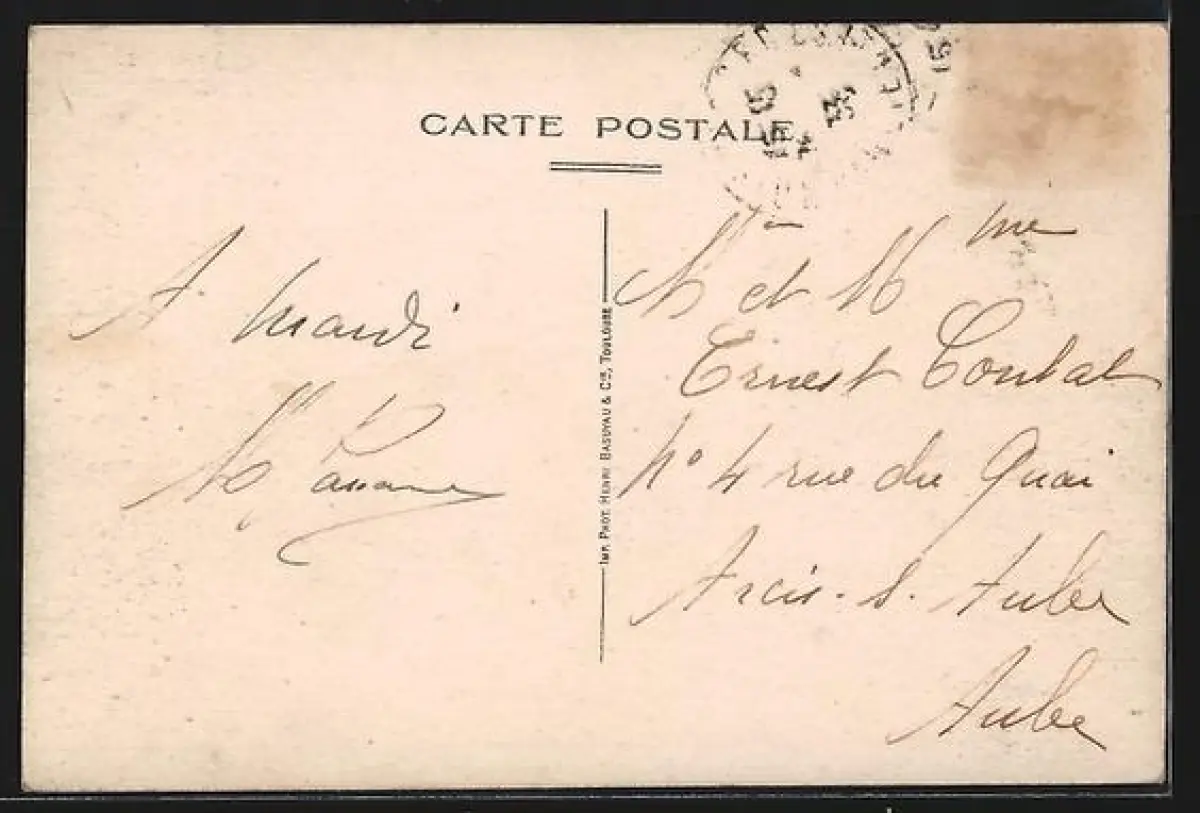 CARTE POSTALE
A mardi
IMP. PHOT. HENRI BASUYAU & Cie, TOULOUSE
Mr et Mme
Ernest
N° 4 rue du Quai
Arcis-s-Aube
Aube